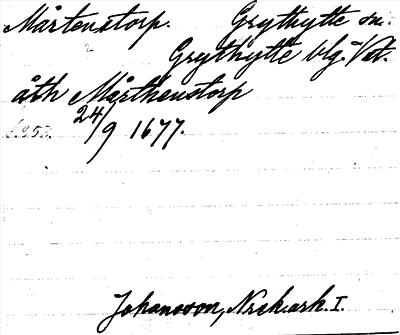 Mårtenstorp. Grythytte sn.
Grythytte blg. Vst.
åth Mårthenstorp
24/9 1677.
Johansson, Nrik.ark. I.